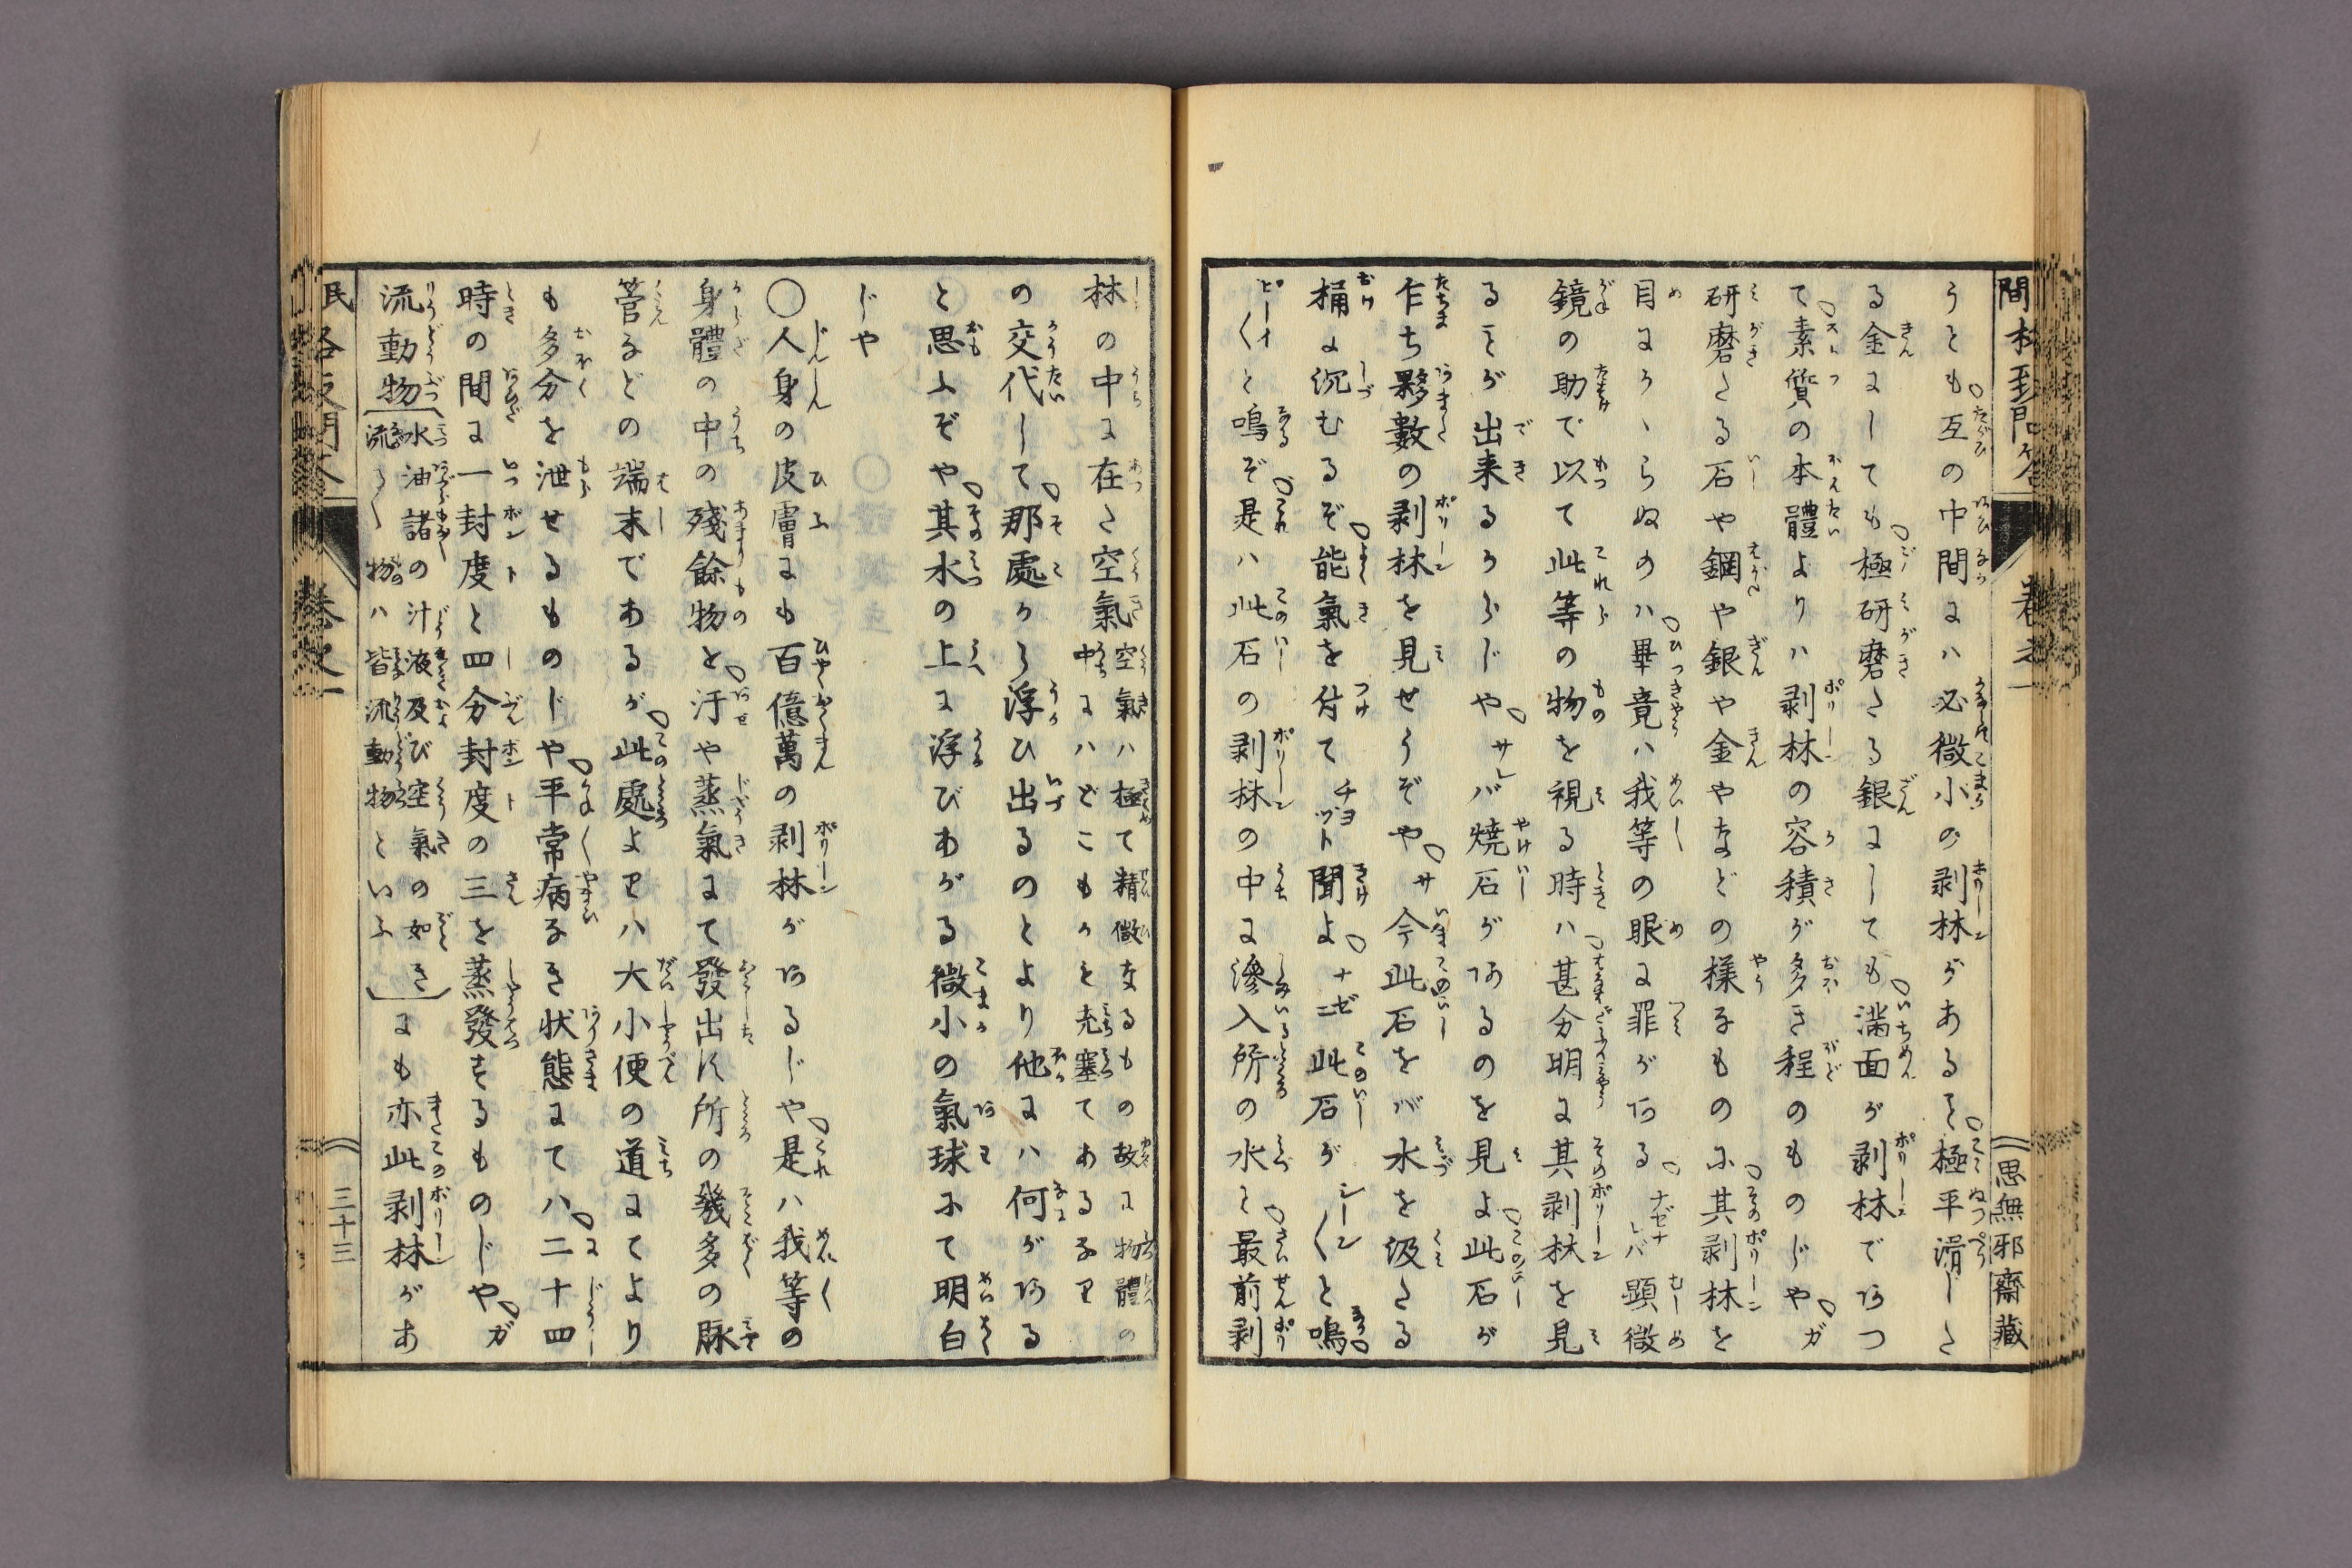 思無邪齋藏
うとも互の中間にハ必微小の剥林があるぞ極平滑した
る金にしても極研磨たる銀にしても満面が剥林であつ
て素質の本體よりハ剥林の容積が多き程のものじやガ
研磨たる石や鋼や銀や金やなどの様なものふ其剥林を
目にかゝらぬのハ畢竟ハ我等の眼に罪がある ナゼナレバ 顕微
鏡の助で以て此等の物を視る時ハ甚分明に其剥林を見
るこが出来るからじやサレバ焼石があるのを見よ此石が
乍ち夥數の剥林を見せうぞやサ今此石をバ水を汲たる
桶に沉むるぞ能氣を付てチヨツト聞よナゼニ此石がシーン〱と鳴
ピーイ〱と鳴ぞ是ハ此石の剥林の中に滲入所の水と最前剥
林の中に在た空氣空氣ハ極て精微なるもの故に物體の
中にハどこもかも充塞てあるなり
の交代して那處から浮ひ出るのとより他にハ何がある
と思ふぞや其水の上に浮びあがる微小の氣球ふて明白
じや
〇人身の皮膚にも百億萬の剥林があるじや是ハ我等の
身體の中の殘餘物と汗や蒸氣にて發出す所の幾多の脉
管などの端末であるが此處よりハ大小便の道にてより
も多分を泄せるものじや平常病なき状態にてハ二十四
時の間に一封度と四分封度の三を蒸發するものじやガ
流動物水油諸の汁液及び空氣の如き
流るゝ物ハ皆流動物といふ
にも亦此剥林があ
三十三